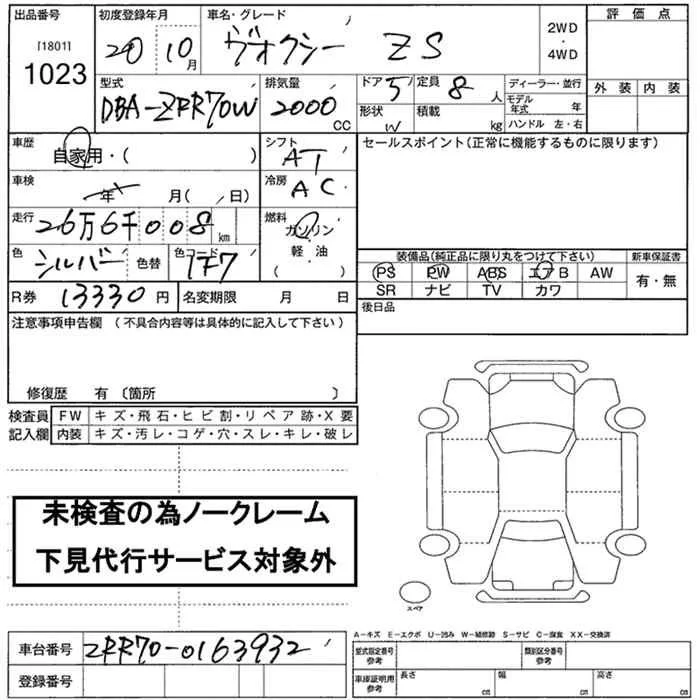 出品番号 初度登録年月 車名・グレード 評価点
[1801] 1023 20 10月 ヴォクシー ZS 2WD・4WD
型式 排気量 ドア 5 定員 8人 ディーラー・並行 外装 内装
DBA-ZRR70W 2000CC 形状 W 積載 kg モデル年式 年
ハンドル 左・右
車歴 自家用・( ) シフト AT セールスポイント(正常に機能するものに限ります)
車検 年 月( 日) 冷房 AC
走行 26万6千008km 燃料 ガソリン・軽油・( )
色 シルバー 色替 色コード 1F7 装備品(純正品に限り丸をつけて下さい) 新車保証書
PS PW ABS エアB AW 有・無
SR ナビ TV カワ
R券 13330円 名変期限 月 日 後日品
注意事項申告欄 (不具合内容等は具体的に記入して下さい)
修復歴 有 〔箇所 〕
検査員 FW キズ・飛石・ヒビ割・リペア跡・X要
記入欄 内装 キズ・汚レ・コゲ・穴・スレ・キレ・破レ
未検査の為ノークレーム
下見代行サービス対象外
スペア
A-キズ E-エクボ U-凹み W-補修跡 S-サビ C-腐食 XX-交換済
車台番号 ZRR70-0163932 型式指定番号 参考 類別区分番号 参考
登録番号 車庫証明用 参考 長さ cm 幅 cm 高さ cm